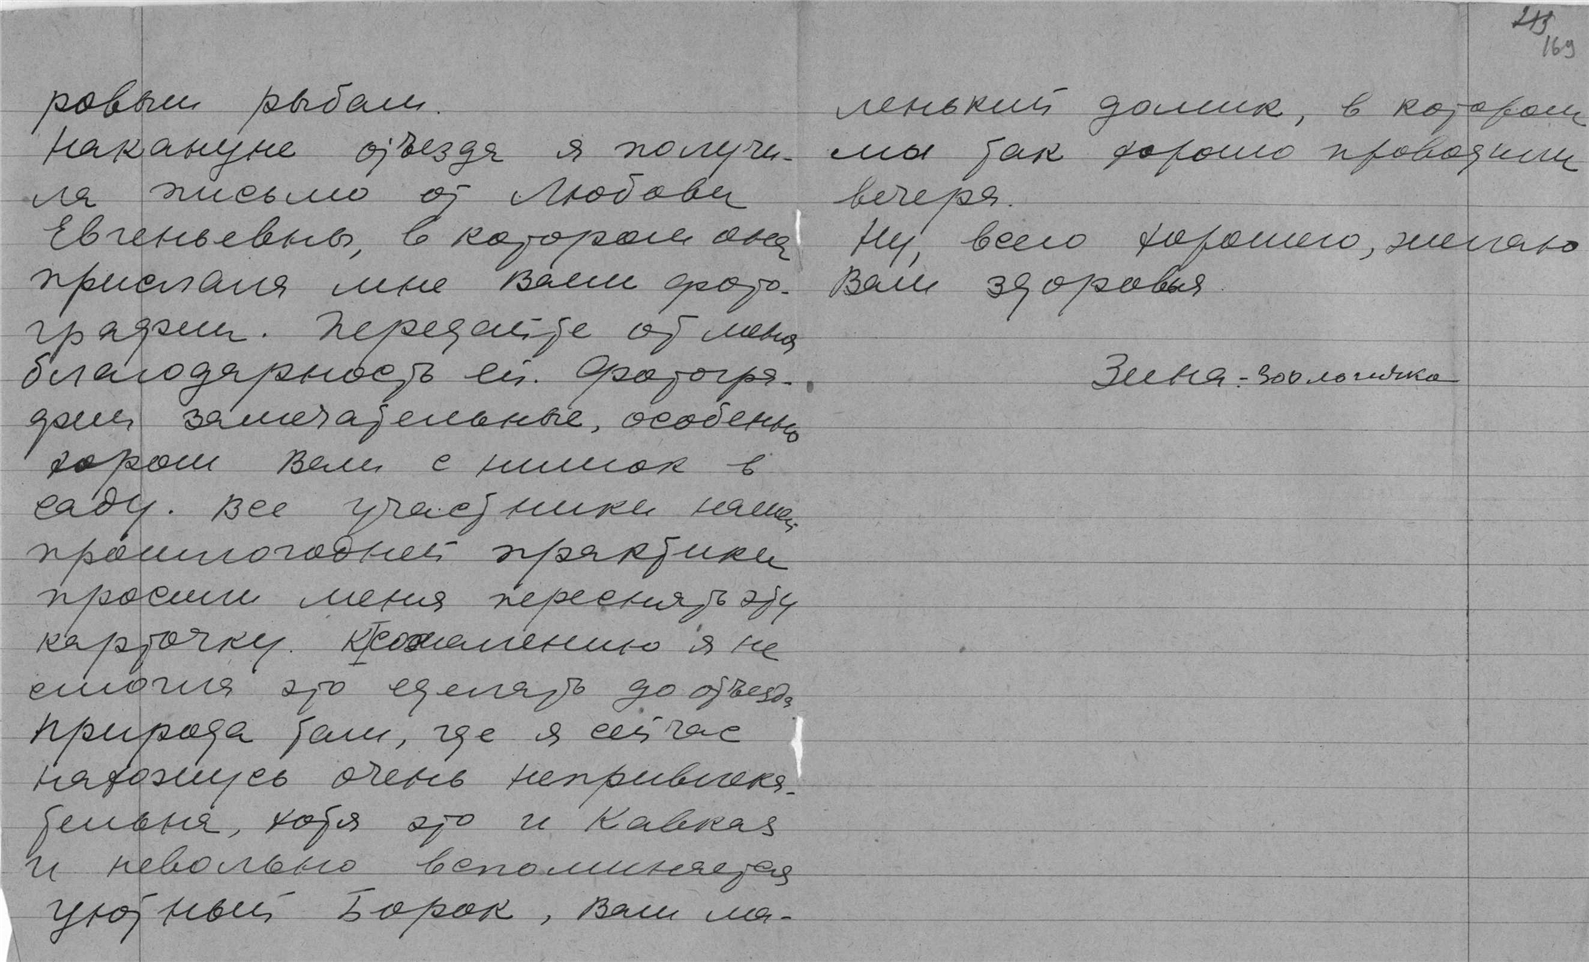 213
169
ровым рыбам.
Накануне отъезда я получи-
ла письмо от Любови
Евгеньевны, в котором она
прислала мне Ваши фото-
графии. Передайте от меня
благодарность ей. Фотогра-
фии замечательные, особенно
хорош Ваш снимок в
саду. Все участники нашей
прошлогодней практики
просили меня переснять эту
карточку. К сожалению я не
смогла это сделать до отъезда
Природа там, где я сейчас
нахожусь очень непривлека-
тельна, хотя это и Кавказ
и невольно вспоминается
уютный Борок, Ваш ма-
ленький домик, в котором
мы так хорошо проводили
вечера.
Ну, всего хорошего, желаю
Вам здоровья.
Зина - зоологичка